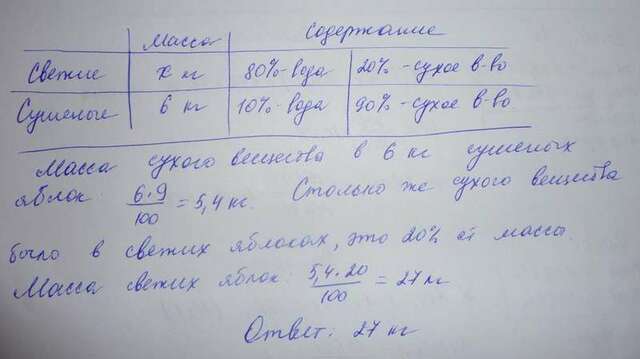 Масса Содержание
Свежие x кг 80%-вода 20%-сухое в-во
Сушеные 6 кг 10%-вода 90%-сухое в-во
Масса сухого вещества в 6 кг сушеных
яблок: 6·9/100 = 5,4 кг. Столько же сухого вещества
было в свежих яблоках, это 20% от массы.
Масса свежих яблок: 5,4·20/100 = 27 кг
Ответ: 27 кг